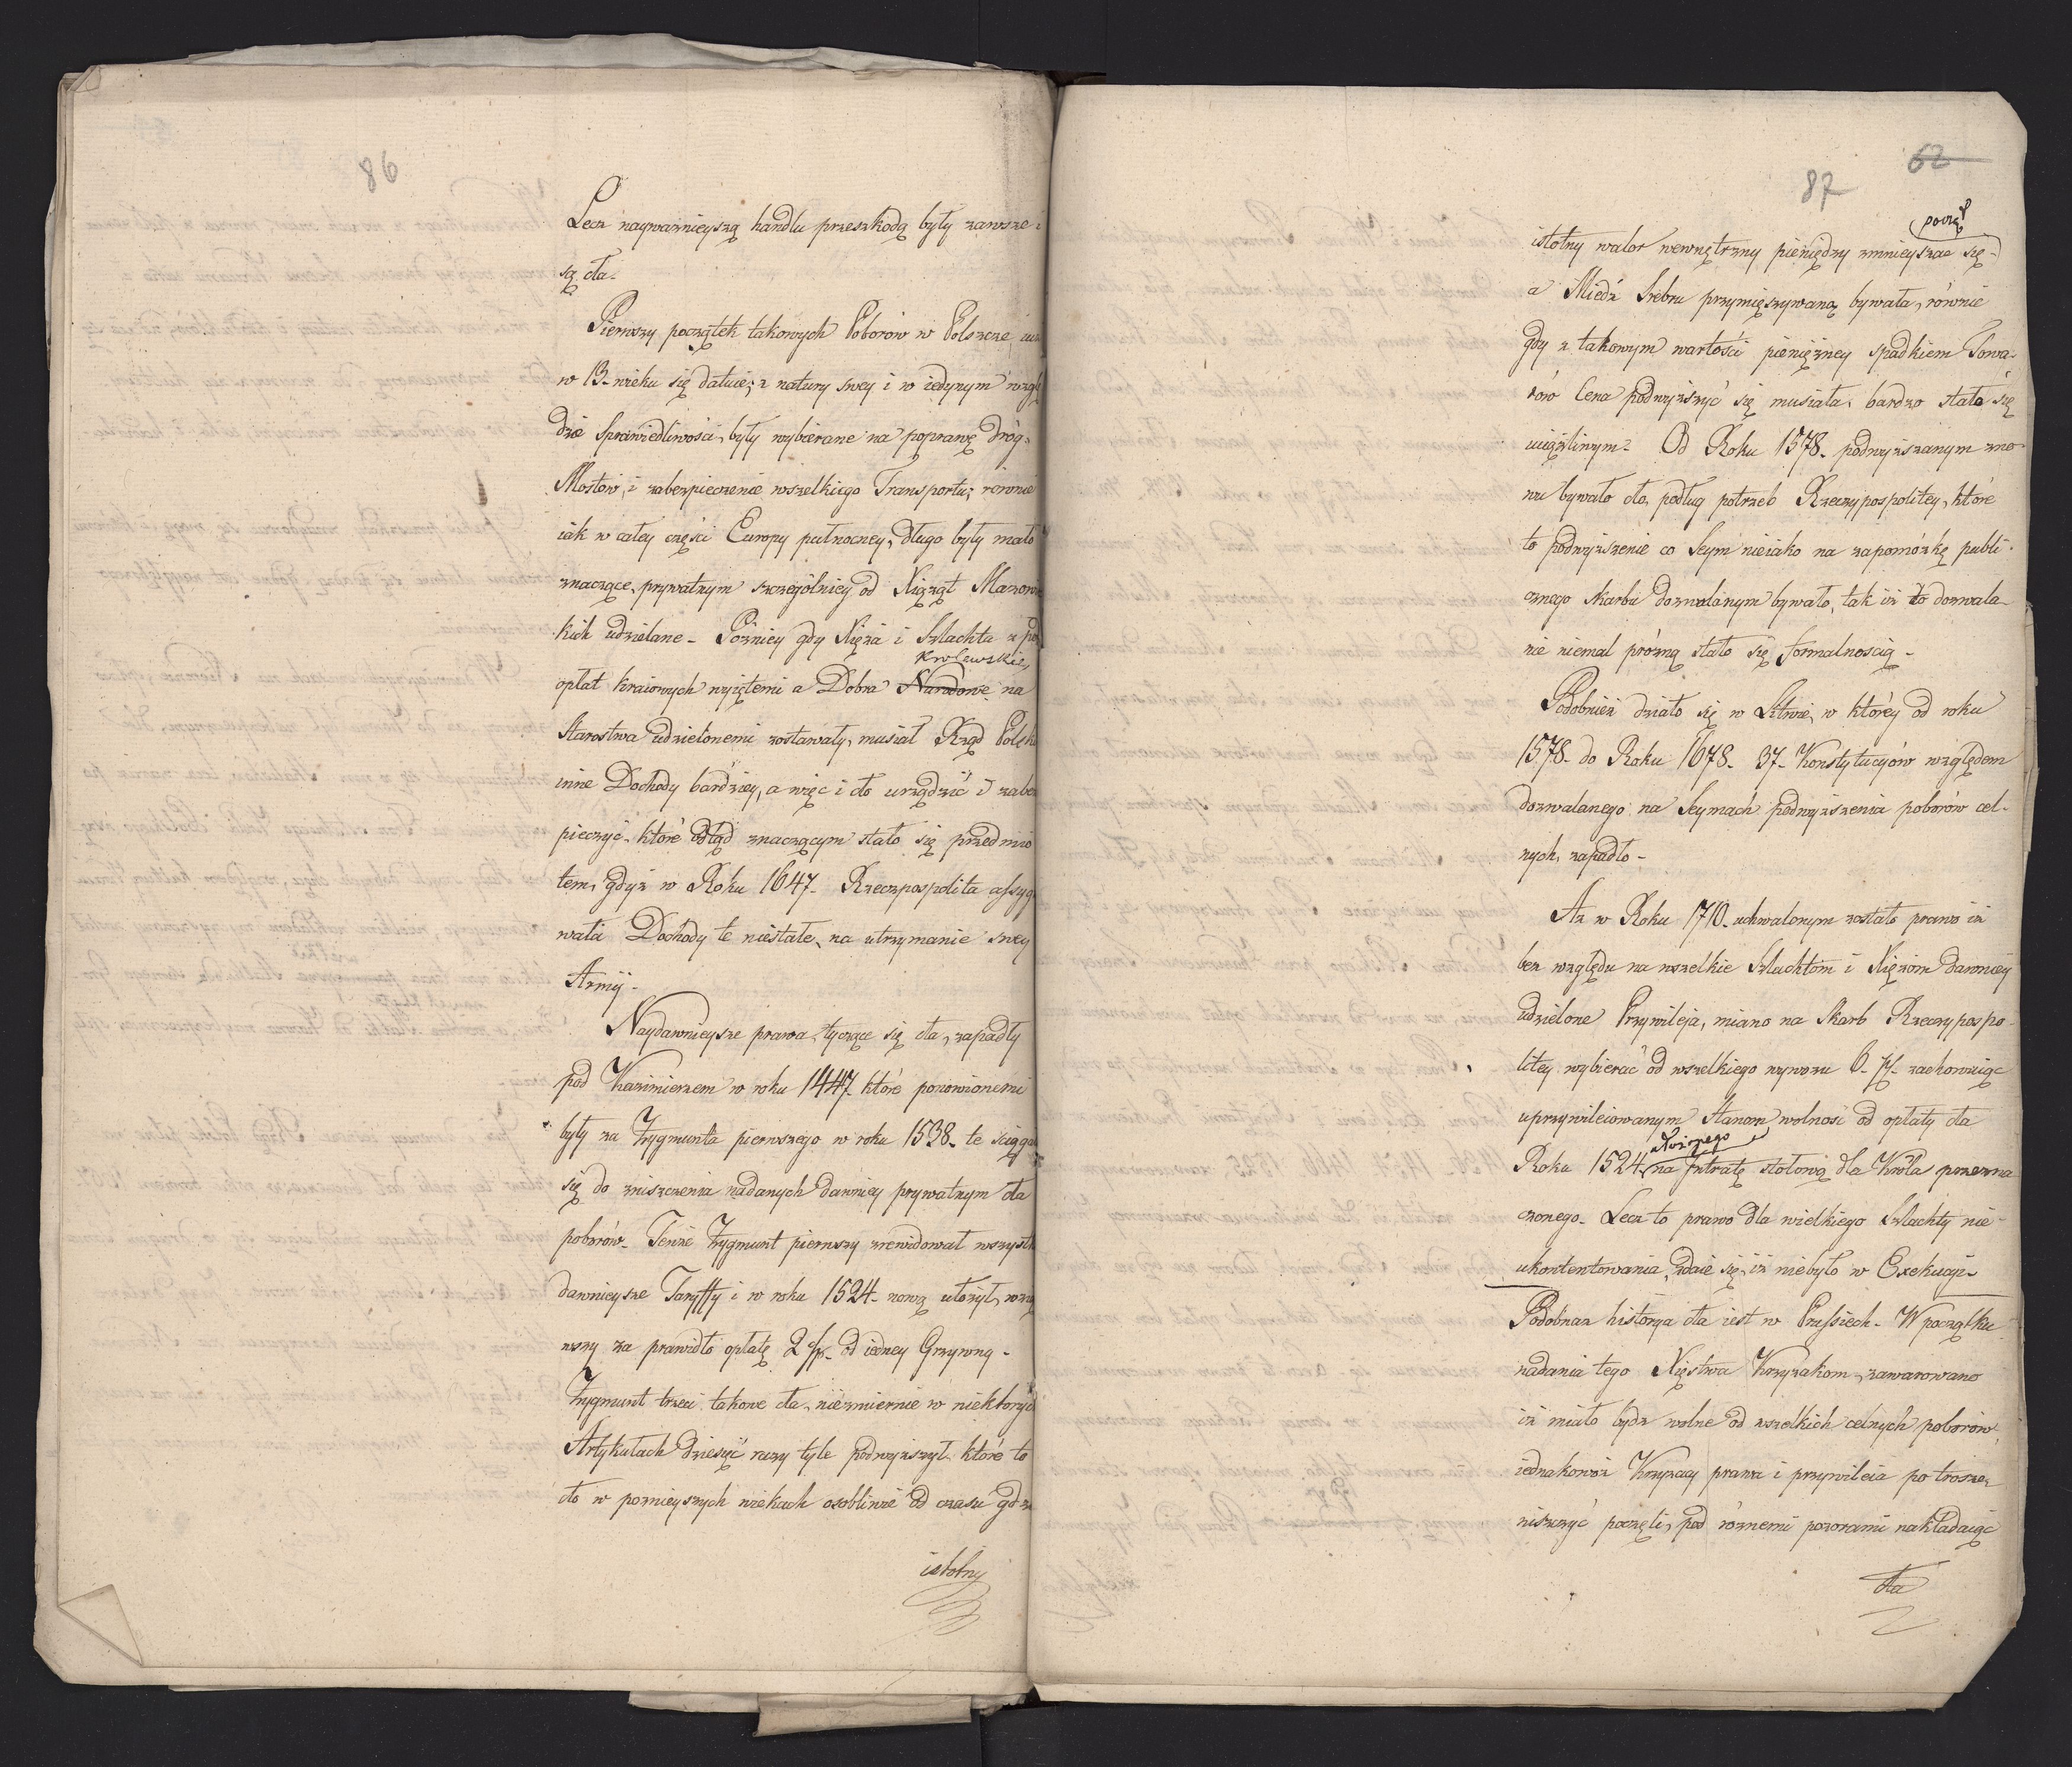 86
Lecz naywaznieyszą handlu przeszkodą były zawsze
są cła.
Pierwszy początek takowych Poborow w Polszcze
w 13. wieku się datuie; z natury swey i w iedynym wzglę
dzie Sprawiedliwosci, były wybierane na poprawę dróg,
Mostow, i zabezpieczenie wszelkiego Transportu; rownie
iak w całey części Europy pułnocney, długo były mało
znaczące, prywatnym szczególniey od Xiążąt Mazowie
kich udzielane - Pózniey gdy Xięża i Szlachta z
Krolewskie,
opłat kraiowych wyiętemi a Dobra Narodowe na
Starostwa udzielonemi zostawały, musiał Rząd Polski
inne Dochody bardziey, a więc i cło urządzić i zabez
pieczyć, które odtąd znaczącym stało się przedmio
tem, gdyż w Roku 1647. Rzeczpospolita assyg
wała Dochody te niestałe, na utrzymanie swey
Armij.
Naydawnieysze prawa, tyczące się cła, zapadły
pod Kazimierzem w roku 1447. które ponowionemi
były za Zygmunta pierwszego w roku 1538. te sciąga
się do zniszczenia nadanych dawniey prywatnym cła
poborów. Tenże Zygmunt pierwszy zrewidował wszystk
dawnieysze Taryffy i w roku 1524. nową ułożył, wzią
wszy za prawidło opłatę 2 od iedney Grzywny -
Zygmunt trzeci takowe cła, niezmiernie w niektorych
Artykułach dziesięć razy tyle podwyższył, które to
cło w poznieyszych wiekach osobliwie od czasu gdzie
istotny
62
87
począł
istotny walor wewnętrzny pieniędzy zmnieyszac się
a Miedź Srebru przymięszywaną bywała, równie
gdy z takowym wartości pienięźney spadkiem Towa-
rów Cena podwyższyć się musiała, bardzo stało się
uciążliwym. Od Roku 1578. podwyższanym zno-
wu bywało cło, podług potrzeb Rzeczypospolitey, które
to podwyższenie co Seym nieiako na zapomózkę publi-
cznego Skarbu dozwalanym bywało, tak iż to dozwala-
nie niemal prózną stało się formalnoscią -
Podobnież działo się w Litwie, w którey od roku
1578. do Roku 1678. 37. Konstytucyów względem
dozwalanego na Seymach podwyższenia poborów cel-
nych, zapadło -
Aż w Roku 1710. uchwalonym zostało prawo iż
bez względu na wszelkie Szlachtom i Xięzom dawniey
udzielone Przywileja, miano na Skarb Rzeczypospo-
litey wybierać od wszelkiego wywozu 6. zachowuiąc
uprzywileiowanym Stanom wolnosc od opłaty cła
Roku 1524. na Intratę stołową dla Króla przezna
czonego. Lecz to prawo dla wielkiego Szlachty nie-
ukontentowania, zdaie się, iż niebyło w Exekucyi.
Podobnaż historya cła iest w Prussiech. W początku
nadania tego Xięstwa Krzyżakom, zawarowano
iż miało bydź wolne od wszelkich celnych poborow,
iednakowoż Krzyżacy prawa i przywileia po trosze,
niszczyć poczęli, pod róznemi pozorami nakładaiąc
cła